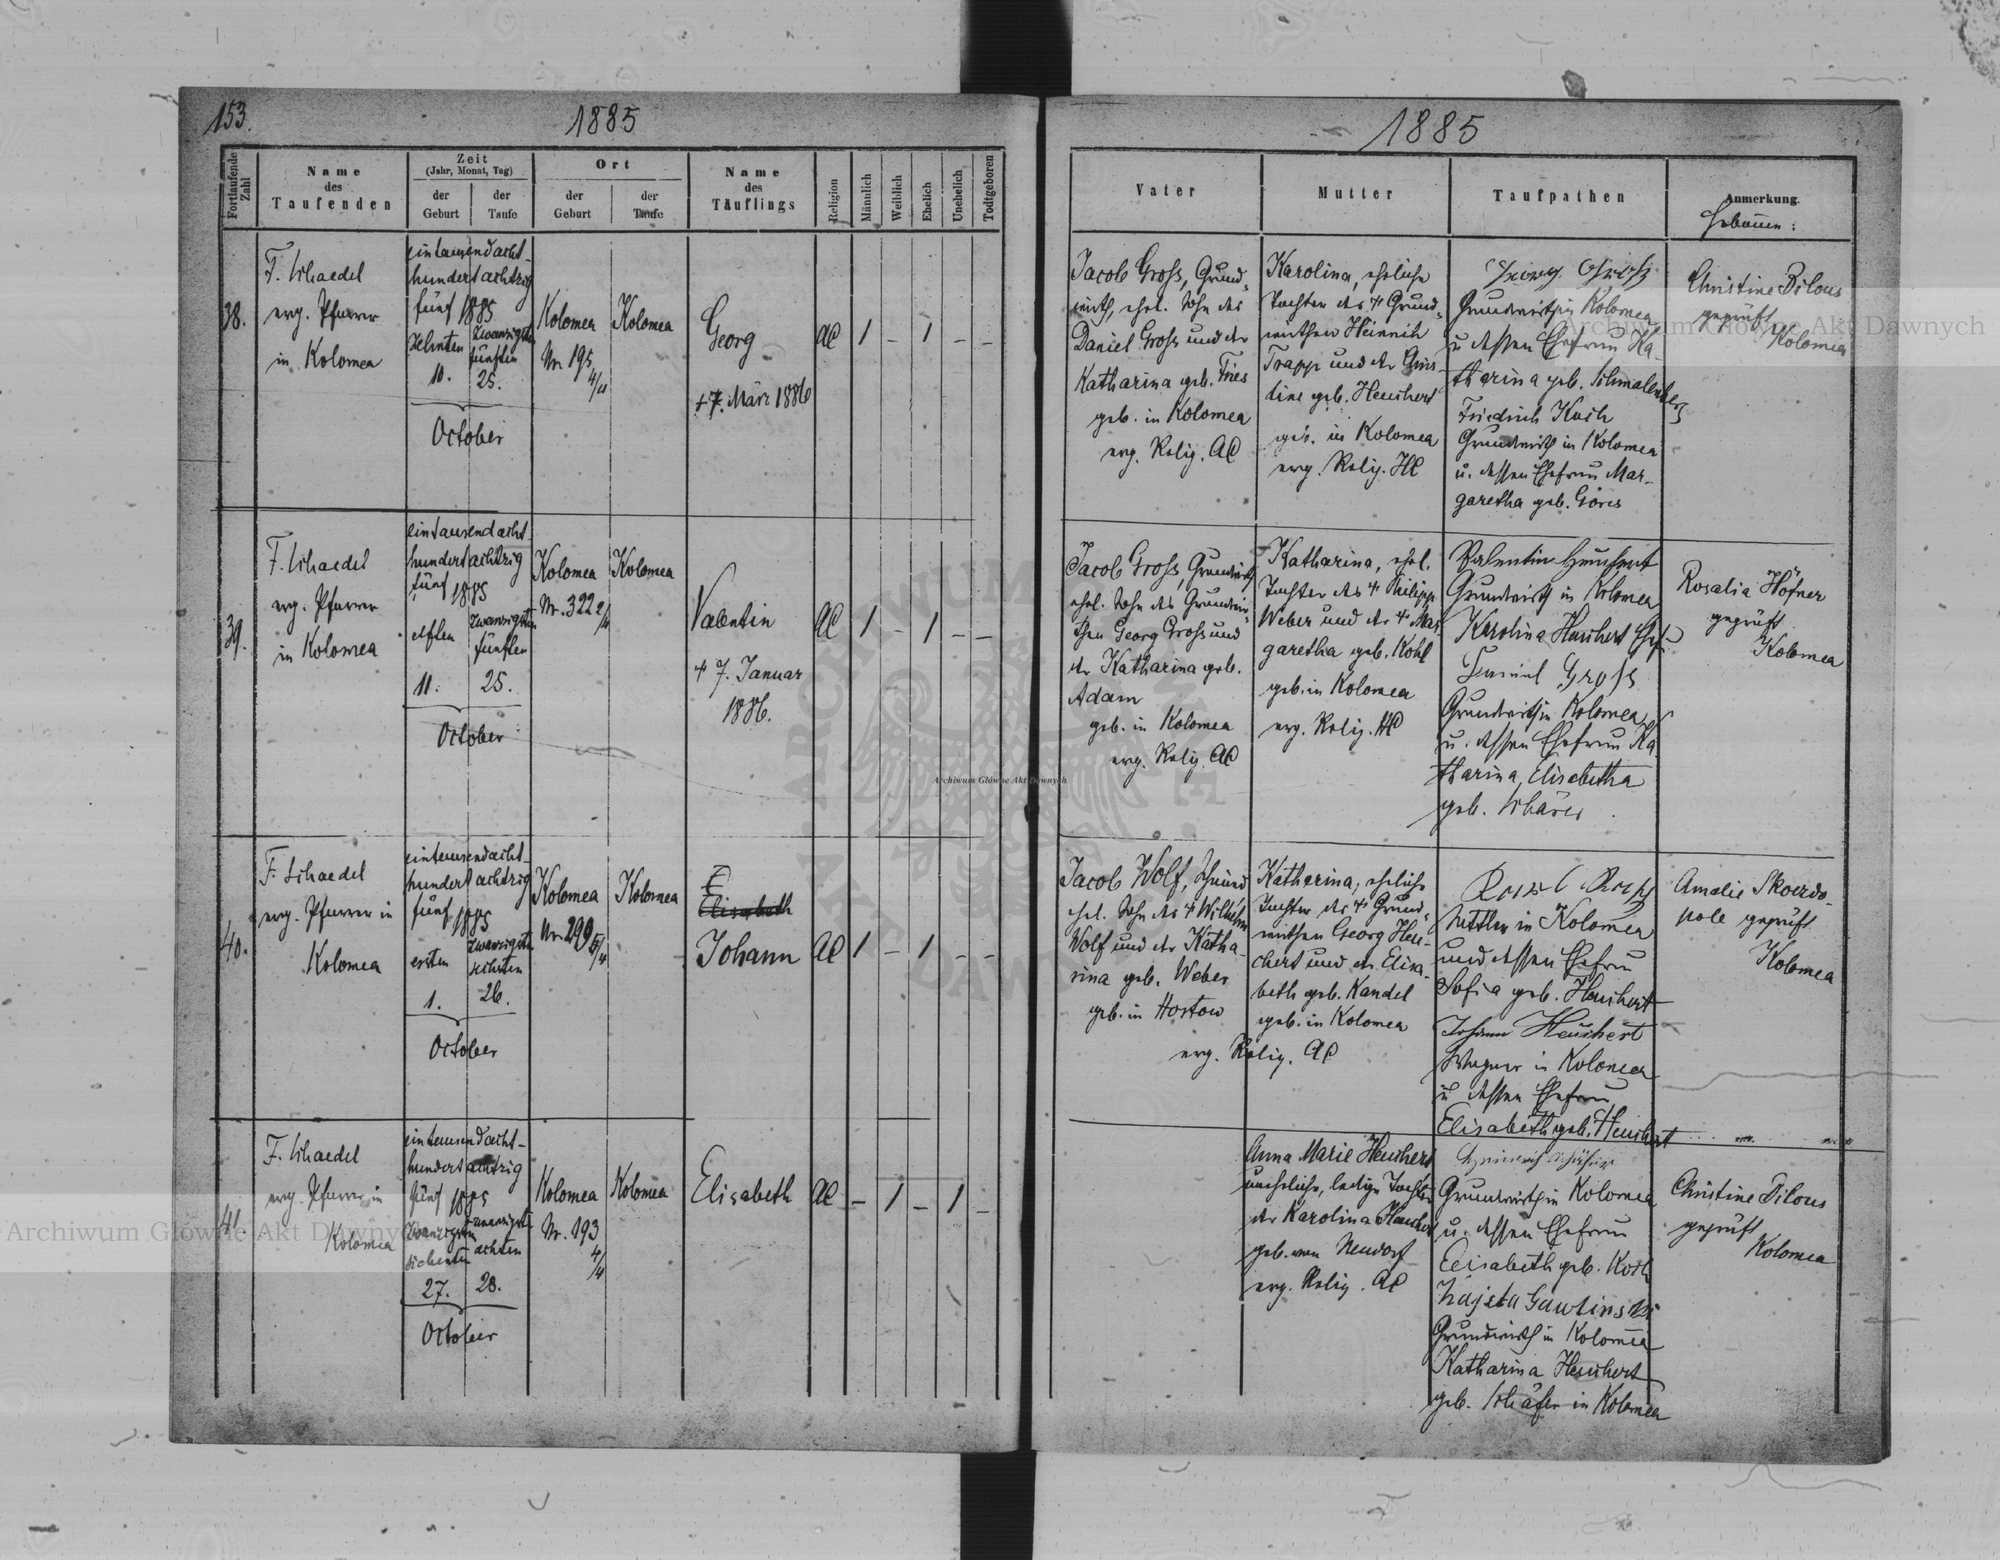 153.
1885
1885
Fortlaufende Zahl
Name
des
Taufenden
Zeit
(Jahr, Monat, Tag)
der
Geburt
der
Taufe
Ort
der
Geburt
der
Taufe
Name
des
Täuflings
Religion
Männlich
Weiblich
Ehelich
Unehelich
Todtgeboren
Vater
Mutter
Taufpathen
Anmerkung.
38.
F. Schaedel
evg. Pfarrer
in Kolomea
eintausendacht-
hundert achtzig
fünf 1885
zehnten
10.
zwanzigsten
fünften
25.
October
Kolomea
Nr. 195
4/4
Kolomea
Georg
+ 7. März 1886
AC
1
-
1
-
-
Jacob Gross, Grund-
wirth, ehel. Sohn des
Daniel Gross und der
Katharina geb. Fries
geb. in Kolomea
evg. Relig. AC
Karolina, eheliche
Tochter des + Grund-
wirthen Heinrich
Trapp und der Chris-
tine geb. Heuchert
geb. in Kolomea
evg. Relig. HC
Georg Gross
Grundwirth in Kolomea
u. dessen Ehefrau Ka-
tharina geb. Schmalenberg
Friedrich Koch
Grundwirth in Kolomea
u. dessen Ehefrau Mar-
garetha geb. Göres
Christine Bilous
geprüft
Kolomea
39.
F. Schaedel
evg. Pfarrer
in Kolomea
eintausendacht-
hundert achtzig
fünf 1885
elften
11.
zwanzigsten
fünften
25.
October
Kolomea
Nr. 322 2/4
Kolomea
Valentin
+ 7. Januar
1886.
AC
1
-
1
-
-
Jacob Gross, Grundwirth
ehel. Sohn des Grundwir-
then Georg Gross und
der Katharina geb.
Adam
geb. in Kolomea
evg. Relig. AC
Katharina, ehel.
Tochter des + Philipp
Weber und der + Mar-
garetha geb. Kohl
geb. in Kolomea
evg. Relig. AC
Valentin Heuchert
Grundwirth in Kolomea
Karolina Heuchert
Daniel Gross
Grundwirth in Kolomea
u. dessen Ehefrau Ka-
tharina Elisabetha
geb.
Rosalia Höfner
geprüft
Kolomea
40.
F. Schaedel
evg. Pfarrer in
Kolomea
eintausendacht-
hundert achtzig
fünf 1885
ersten
1.
zwanzigsten
sechsten
26.
October
Kolomea
Nr. 299 5/4
Kolomea
Elisabeth
Johann
AC
1
-
1
-
-
Jacob Wolf, Schmied
ehel. Sohn des + Wilhelm
Wolf und der Katha-
rina geb. Weber
geb. in Horton
Katharina, eheliche
Tochter des + Grund-
wirthen Georg Heu-
chert und der Elisa-
beth geb. Kandel
geb. in Kolomea
evg. Relig. AC
in Kolomea
und dessen Ehefrau
Sofia geb. Heuchert
Johann Heuchert
Wagner in Kolomea
u. dessen Ehefrau
Elisabeth geb. Heuchert
Amalie Skoerdo-
pole geprüft
Kolomea
41.
F. Schaedel
evg. Pfarrer in
Kolomea
eintausendacht-
hundert achtzig
fünf 1885
zwanzigsten
siebenten
27.
zwanzigsten
achten
28.
October
Kolomea
Nr. 193
4/4
Kolomea
Elisabeth
AC
-
1
-
1
-
Anna Marie Heuchert
uneheliche, ledige Tochter
der Karolina Heuchert
geb. von Neudorf
evg. Relig. AC
Heinrich Schäfer
Grundwirth in Kolomea
u. dessen Ehefrau
Elisabeth geb. Koch
Gawlinski
Grundwirth in Kolomea
Katharina Heuchert
geb. Schäfer in Kolomea
Christine Bilous
geprüft
Kolomea
Archiwum Główne Akt Dawnych
Archiwum Główne Akt Dawnych
Archiwum Główne Akt Dawnych